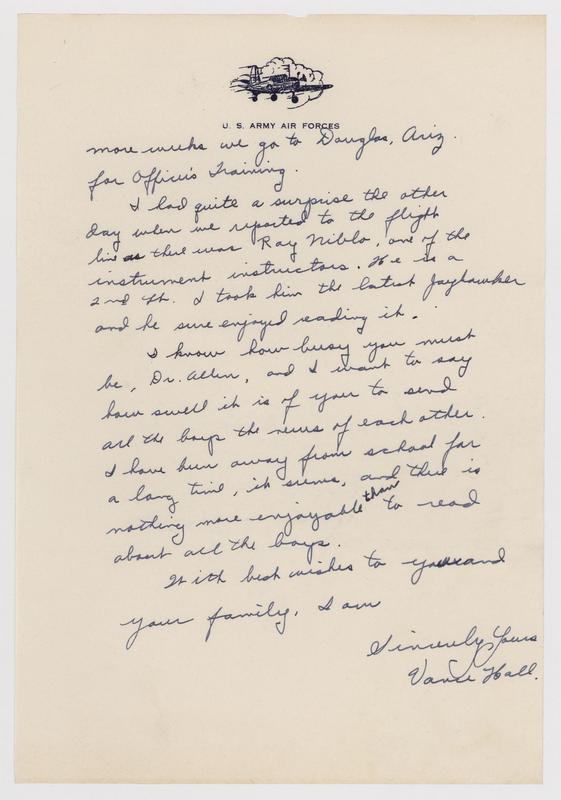 U. S. ARMY AIR FORCES
more weeks we go to Douglas, Ariz.
for Officer's Training.
I had quite a surprise the other
day when we reported to the flight
line as there was Ray Niblo, one of the
instrument instructors. He is a
2nd Lt. I took him the latest Jayhawker
and he sure enjoyed reading it.
I know how busy you must
be, Dr. Allen, and I want to say
how swell it is of you to send
all the boys the news of each other.
I have been away from school for
a long time, it seems, and there is
nothing more enjoyable than to read
about all the boys.
With best wishes to you and
your family, I am
Sincerely Yours
Vance Hall.